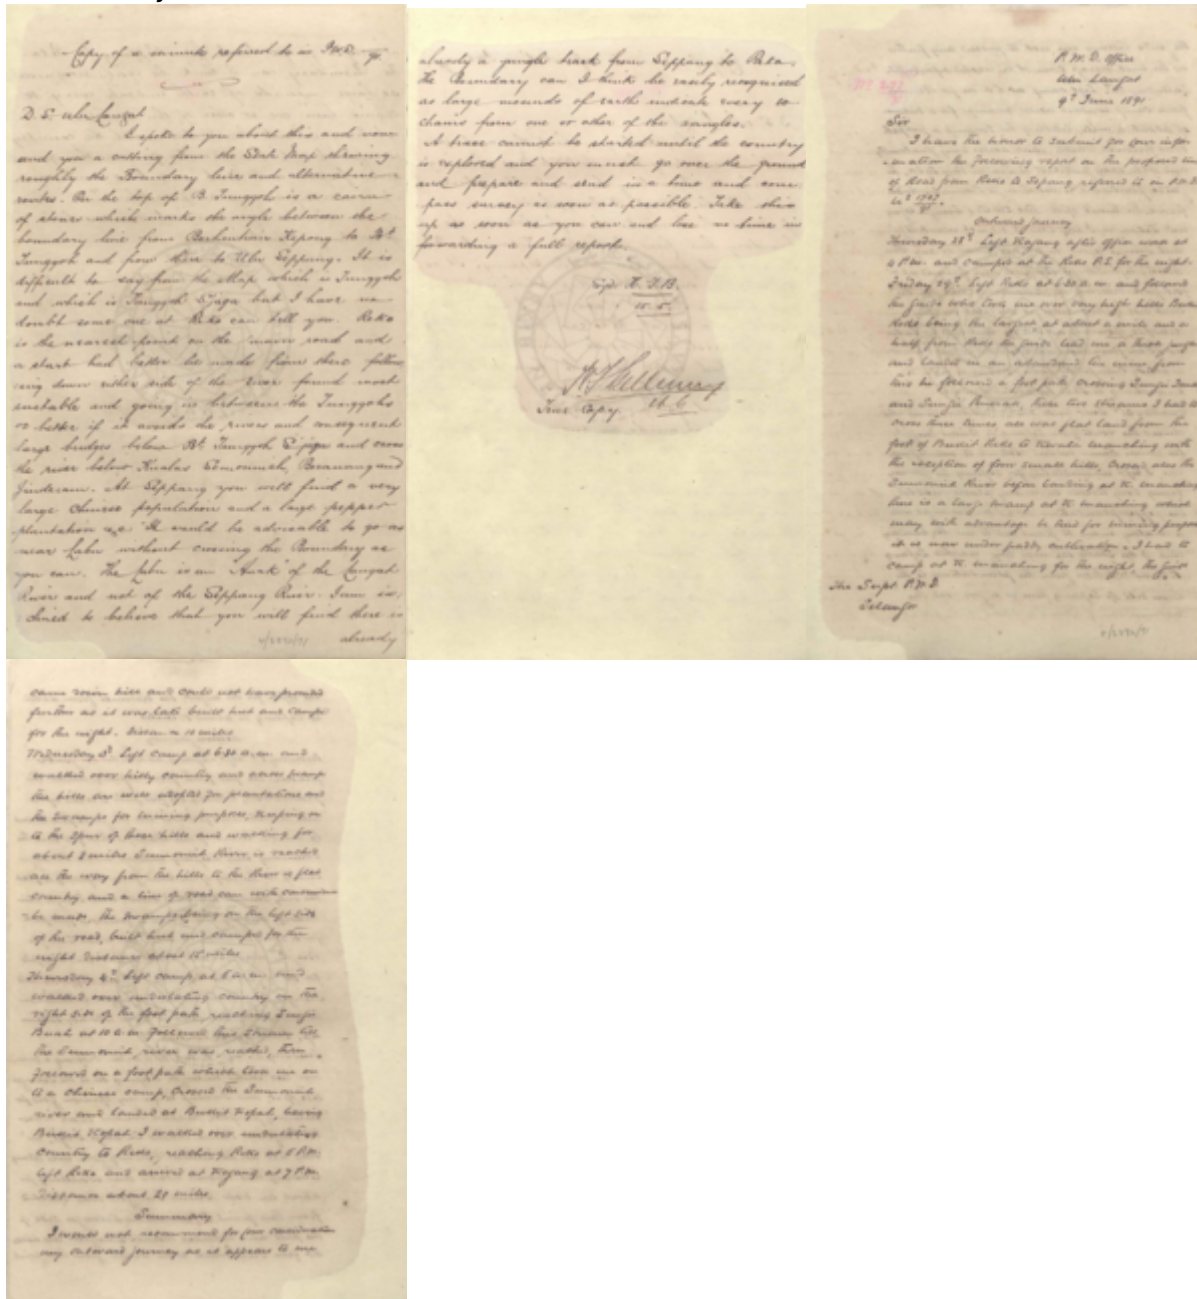 Copy of a minute referred to in P.W.D.
D. E. Ulu Langat
I spoke to you about this and
and you a cutting from the State Map showing
roughly the Boundary line and alternative
routes. On the top of B. Tunggoh is a cairn
of stones which marks the angle between the
boundary line from Barhentian Kepong to Bt
Tunggoh and from there to Ulu Sippang. It is
difficult to say from the Map which is Tunggoh
and which is Tunggoh Sjaga but I have no
doubt some one at Reko can tell you. Reko
is the nearest point on the main road and
a start had better be made from there follow
ing down either side of the River found most
suitable and going in between the Tunggohs
or better if it avoids the rivers and consequent
large bridges below Bt Tunggoh Sjaga and cross
the river below Kualas Semonieh, Beranang and
Jinderam. At Sippang you will find a very
large Chinese population and a large pepper
plantation &c. It would be advisable to go as
near Labu without crossing the Boundary as
you can. The Labu is an "Anak" of the Langat
River and not of the Sippang River. I am in
clined to believe that you will find there is
already
already a jungle track from Sippang to Reko.
The Boundary can I think be easily recognised
as large mounds of earth indicate every 10
chains from one or other of the angles.
A trace cannot be started until the country
is explored and you must go over the ground
and prepare and send in a time and com
pass survey as soon as possible. Take this
up as soon as you can and lose no time in
forwarding a full report.
Sgd H. F. B.
15.5.
True Copy.
P. W. D. Office
Ulu Langat
9th June 1891
Sir
I have the honor to submit for your infor
mation the following report on the proposed line
of Road from Reko to Sepang referred to in P.W.D
Outward journey
Thursday 28th Left Kajang after office work at
4 P.M. and camped at the Reko P.S. for the night.
Friday 29th Left Reko at 6.30 a.m. and followed
the guide who took me over very high hills Bukit
Reko being the largest at about a mile and a
half from Reko the guide lead me
and landed in an abandoned from
this he followed a foot path crossing Sungei
and Sungei these two streams I had to
cross three times all was flat land from the
foot of Bukit Reko to
the exception of four small hills, Cross also the
Semonieh River before landing at
there is a large swamp at which
may with advantage be tried for mining purposes
it is now under paddy cultivation. I had to
camp at for the night, the first
The Supt. P.W.D
Selangor
came down hill and could not have proceeded
further as it was late built hut and camped
for the night. Distance 10 miles
Wednesday 3rd Left camp at 6.30 a.m. and
walked over hilly country and swamp
the hills are well adapted for plantations and
the swamps for mining purposes, keeping on
to the spur of these hills and walking for
about 8 miles Semonieh River is reached
all the way from the hills to the River is flat
country and a line of road can with
be made, the swamps being on the left side
of the road, built hut and camped for the
night distance about 15 miles
Thursday 4th Left camp at 6 a.m. and
walked over undulating country on the
right side of the foot path, reaching Sungei
Buah at 10 a.m. followed this stream till
the Semonieh river was reached, then
followed on a foot path which took me on
to a Chinese camp, Crossed the Semonieh
river and landed at Bukit Kopah, leaving
Bukit Kopah I walked over undulating
country to Reko, reaching Reko at 5 P.M.
left Reko and arrived at Kajang at 7 P.M.
Distance about 20 miles.
Summary
I would not recommend for your consideration
my outward journey as it appears to me